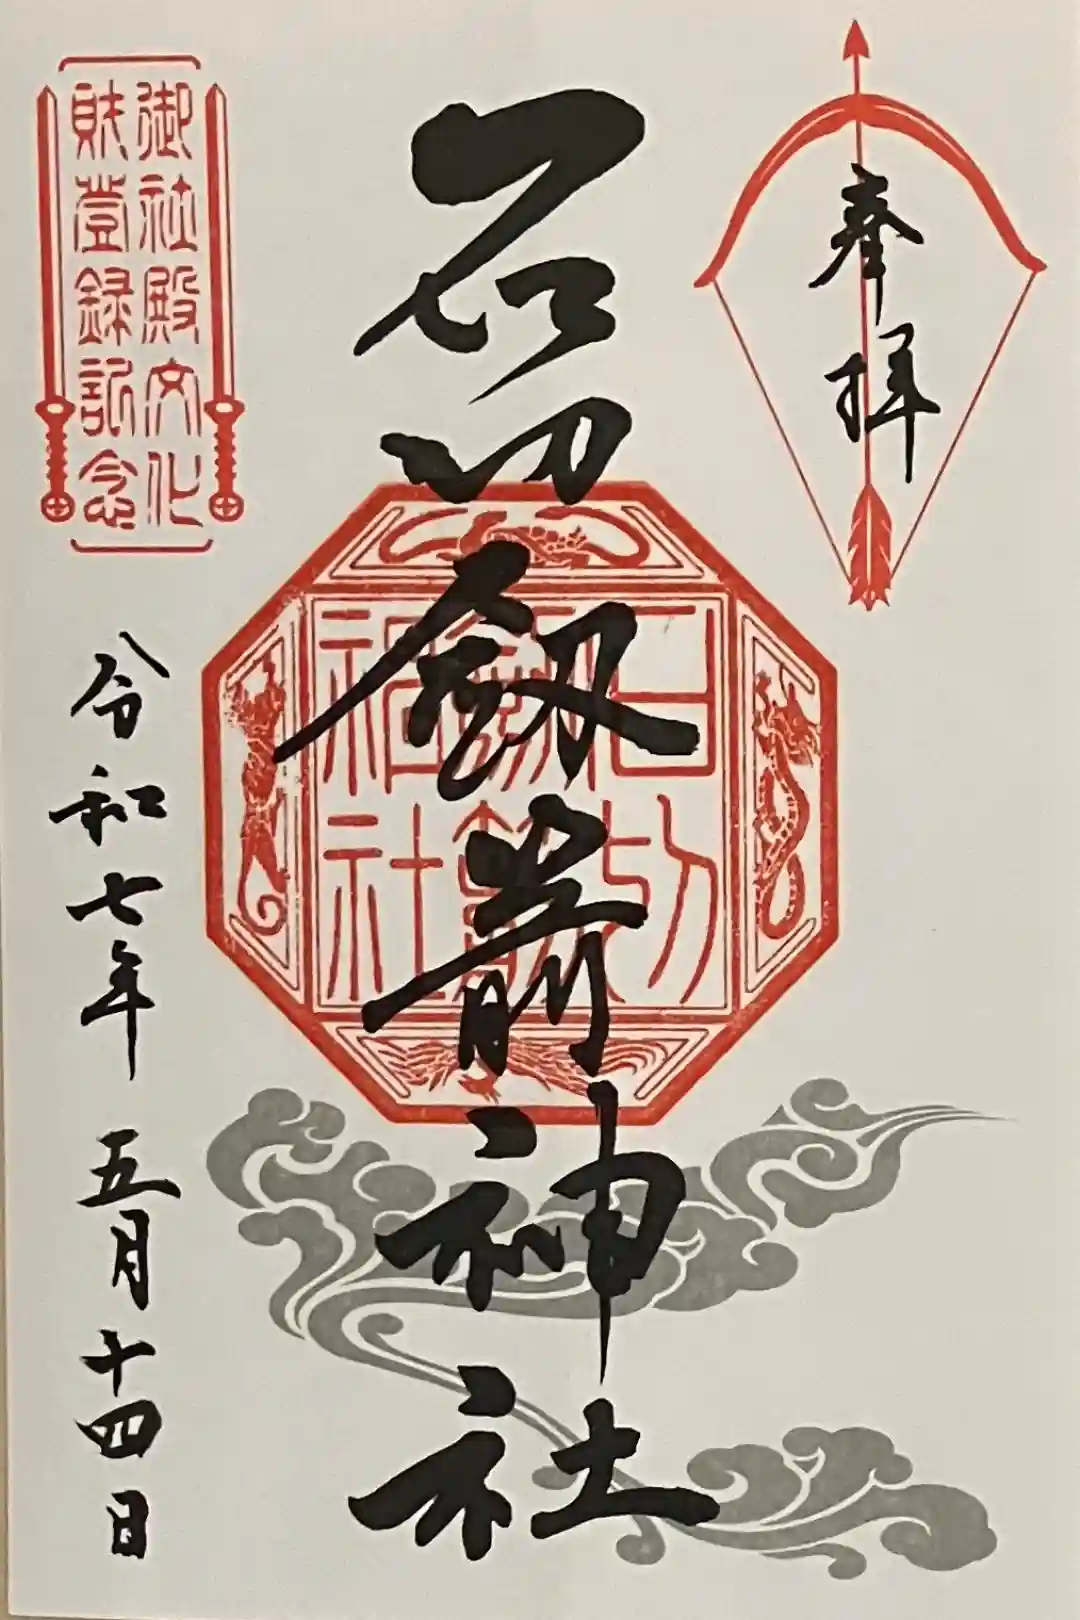 奉拝
石切劔箭神社
石切
劔箭
神社
御社殿文化
財登録記念
令和七年五月十四日